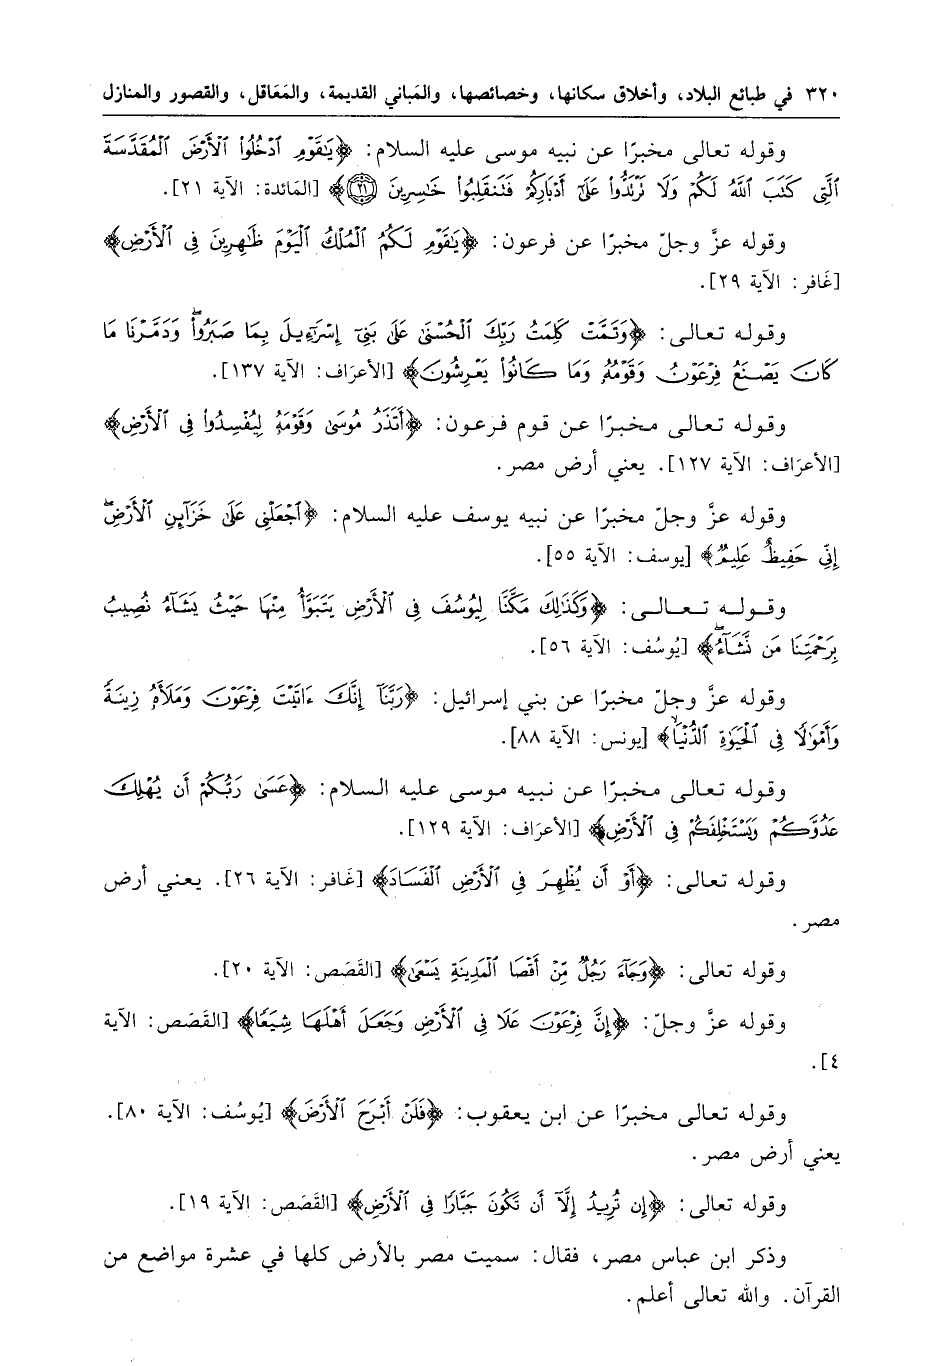 ٣٢٠ في طبائع البلاد، وأخلاق سكانها، وخصائصها، والمَباني القديمة، والمَعَاقل، والقصور والمنازل
وقوله تعالى مخبرًا عن نبيه موسى عليه السلام: ﴿يَٰقَوْمِ ٱدْخُلُوا۟ ٱلْأَرْضَ ٱلْمُقَدَّسَةَ
ٱلَّتِى كَتَبَ ٱللَّهُ لَكُمْ وَلَا تَرْتَدُّوا۟ عَلَىٰٓ أَدْبَارِكُمْ فَتَنقَلِبُوا۟ خَٰسِرِينَ ۝٢١﴾ [المَائدة: الآية ٢١].
وقوله عزَّ وجلّ مخبرًا عن فرعون: ﴿يَٰقَوْمِ لَكُمُ ٱلْمُلْكُ ٱلْيَوْمَ ظَٰهِرِينَ فِى ٱلْأَرْضِ﴾
[غَافر: الآية ٢٩].
وقوله تعالى: ﴿وَتَمَّتْ كَلِمَتُ رَبِّكَ ٱلْحُسْنَىٰ عَلَىٰ بَنِىٓ إِسْرَٰٓءِيلَ بِمَا صَبَرُوا۟ ۖ وَدَمَّرْنَا مَا
كَانَ يَصْنَعُ فِرْعَوْنُ وَقَوْمُهُۥ وَمَا كَانُوا۟ يَعْرِشُونَ﴾ [الأعرَاف: الآية ١٣٧].
وقوله تعالى مخبرًا عن قوم فرعون: ﴿أَتَذَرُ مُوسَىٰ وَقَوْمَهُۥ لِيُفْسِدُوا۟ فِى ٱلْأَرْضِ﴾
[الأعرَاف: الآية ١٢٧]. يعني أرض مصر.
وقوله عزَّ وجلّ مخبرًا عن نبيه يوسف عليه السلام: ﴿ٱجْعَلْنِى عَلَىٰ خَزَآئِنِ ٱلْأَرْضِ ۖ
إِنِّى حَفِيظٌ عَلِيمٌ﴾ [يوسف: الآية ٥٥].
وقوله تعالى: ﴿وَكَذَٰلِكَ مَكَّنَّا لِيُوسُفَ فِى ٱلْأَرْضِ يَتَبَوَّأُ مِنْهَا حَيْثُ يَشَآءُ ۚ نُصِيبُ
بِرَحْمَتِنَا مَن نَّشَآءُ ۖ﴾ [يُوسُف: الآية ٥٦].
وقوله عزَّ وجلّ مخبرًا عن بني إسرائيل: ﴿رَبَّنَآ إِنَّكَ ءَاتَيْتَ فِرْعَوْنَ وَمَلَأَهُۥ زِينَةً
وَأَمْوَٰلًا فِى ٱلْحَيَوٰةِ ٱلدُّنْيَا﴾ [يونس: الآية ٨٨].
وقوله تعالى مخبرًا عن نبيه موسى عليه السلام: ﴿عَسَىٰ رَبُّكُمْ أَن يُهْلِكَ
عَدُوَّكُمْ وَيَسْتَخْلِفَكُمْ فِى ٱلْأَرْضِ﴾ [الأعرَاف: الآية ١٢٩].
وقوله تعالى: ﴿أَوْ أَن يُظْهِرَ فِى ٱلْأَرْضِ ٱلْفَسَادَ﴾ [غَافر: الآية ٢٦]. يعني أرض
مصر.
وقوله تعالى: ﴿وَجَآءَ رَجُلٌ مِّنْ أَقْصَا ٱلْمَدِينَةِ يَسْعَىٰ﴾ [القَصَص: الآية ٢٠].
وقوله عزَّ وجلّ: ﴿إِنَّ فِرْعَوْنَ عَلَا فِى ٱلْأَرْضِ وَجَعَلَ أَهْلَهَا شِيَعًا﴾ [القَصَص: الآية
٤].
وقوله تعالى مخبرًا عن ابن يعقوب: ﴿فَلَنْ أَبْرَحَ ٱلْأَرْضَ﴾ [يُوسُف: الآية ٨٠].
يعني أرض مصر.
وقوله تعالى: ﴿إِن تُرِيدُ إِلَّآ أَن تَكُونَ جَبَّارًا فِى ٱلْأَرْضِ﴾ [القَصَص: الآية ١٩].
وذكر ابن عباس مصر، فقال: سميت مصر بالأرض كلها في عشرة مواضع من
القرآن. والله تعالى أعلم.